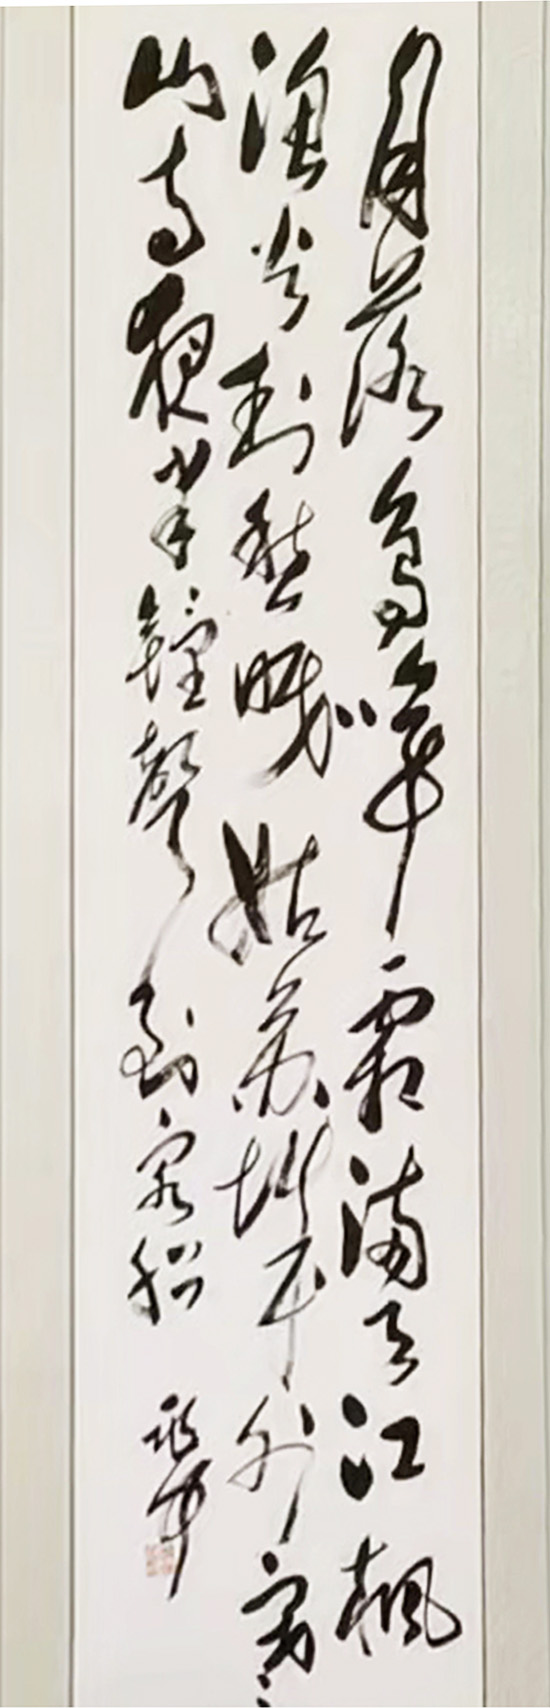 月落烏啼霜滿天江楓
漁火到愁眠姑蘇城外寒
山寺夜半鐘聲到客船